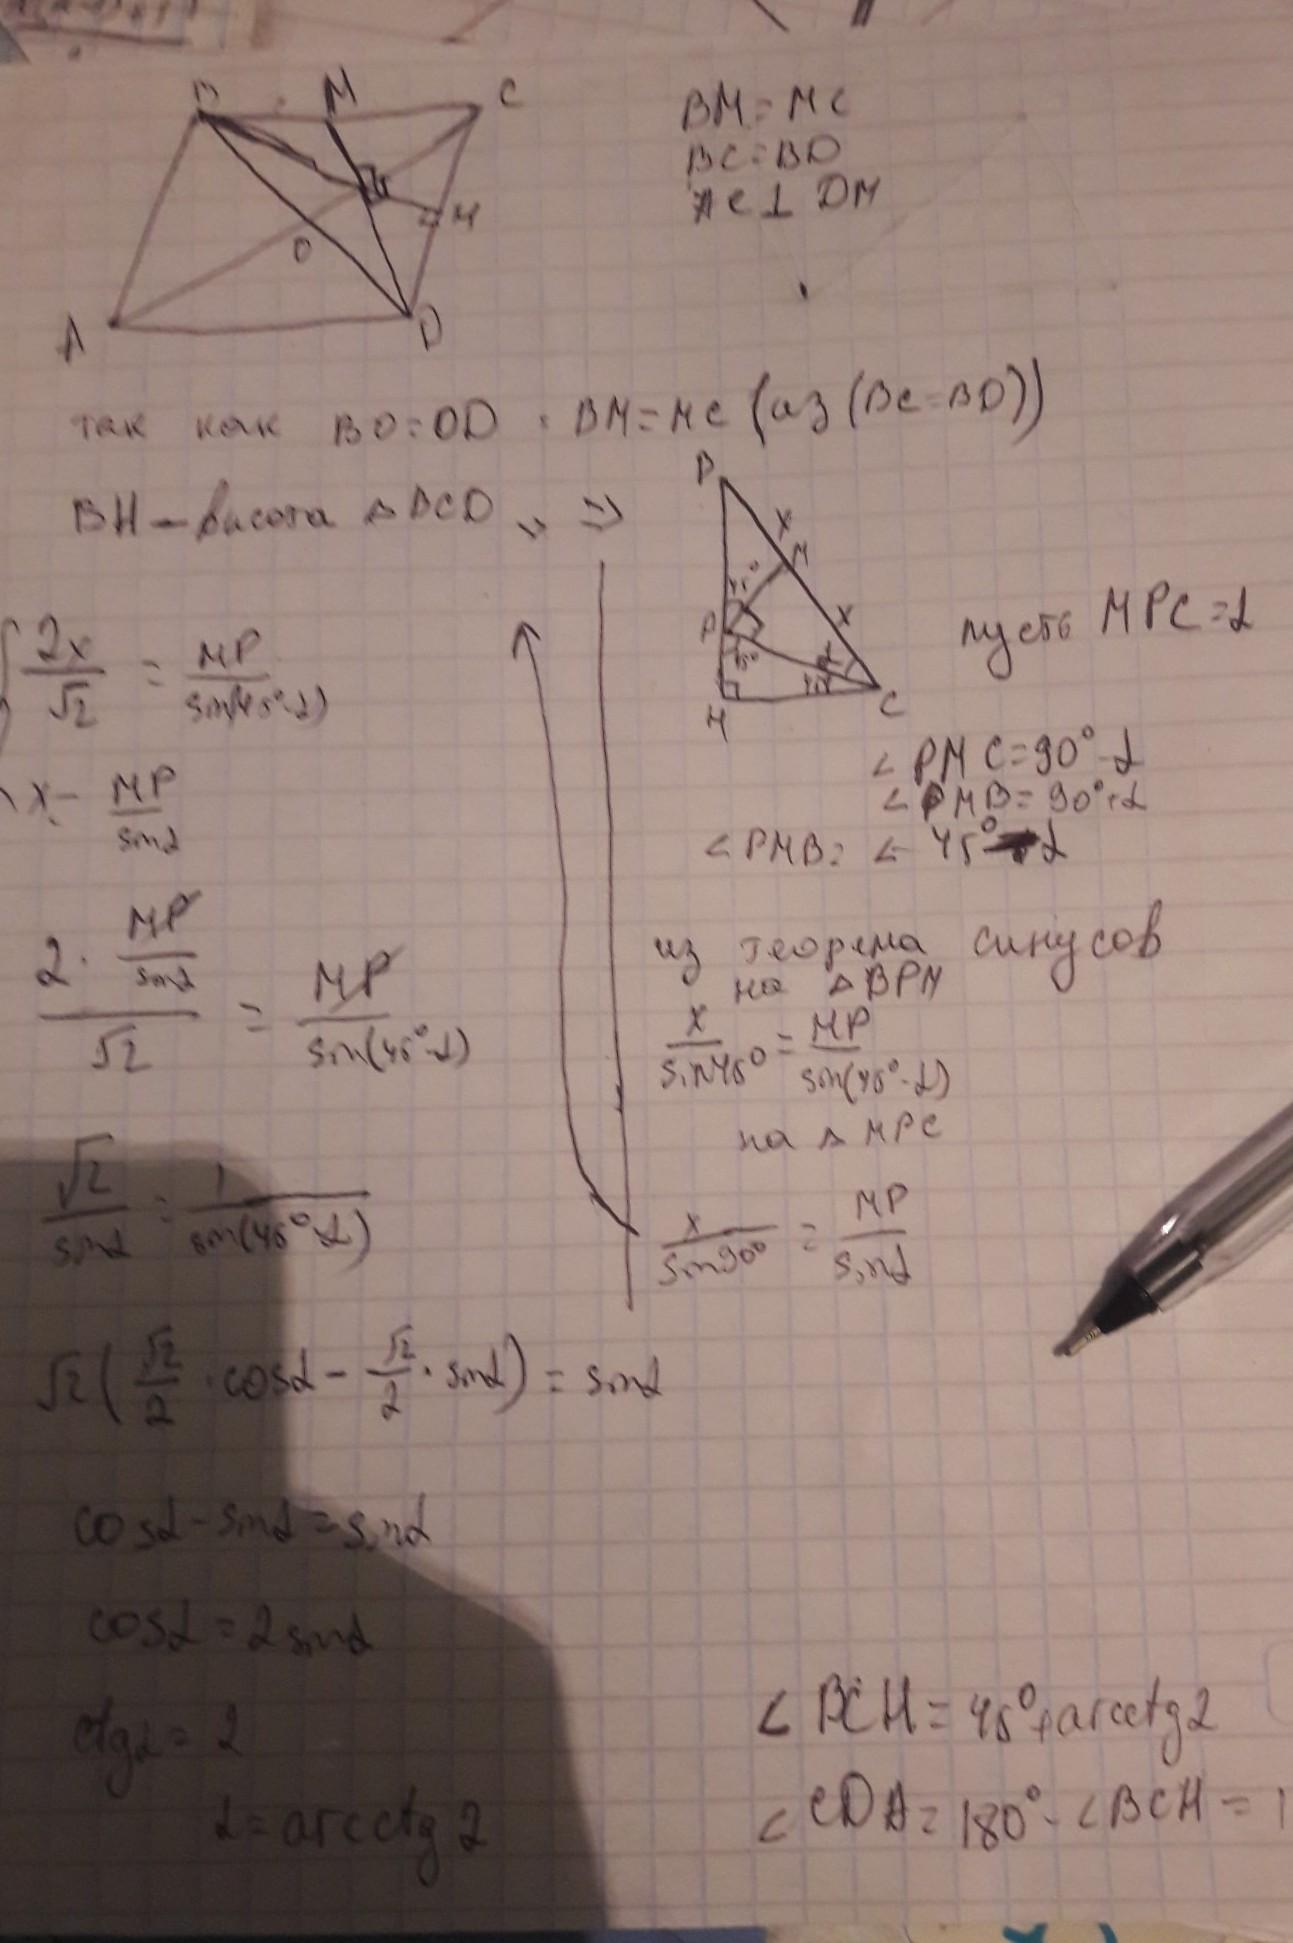 B M C
H
O
A D
BM = MC
BC = BD
AC ⊥ DM
так как BO = OD , BM = MC (из (BC = BD))
BH – висота △ BCD ⇒
B
x
M
45°
x
P
45° 45° α
H C
пусть MPC = α
∠ PMC = 90° - α
∠ PMB = 90° + α
∠ PMB = ∠ 45° - α
из теорема синусов
на △ BPM
x / sin45° = MP / sin(45° - α)
на △ MPC
x / sin90° = MP / sinα
2x / √2 = MP / sin(45° - α)
x = MP / sinα
2 · MP / sinα / √2 = MP / sin(45° - α)
√2 / sinα = 1 / sin(45° - α)
√2 ( √2/2 · cosα - √2/2 · sinα ) = sinα
cosα - sinα = sinα
cosα = 2 sinα
ctgα = 2
α = arcctg 2
∠ BCH = 45° + arcctg 2
∠ CDA = 180° - ∠ BCH = 1